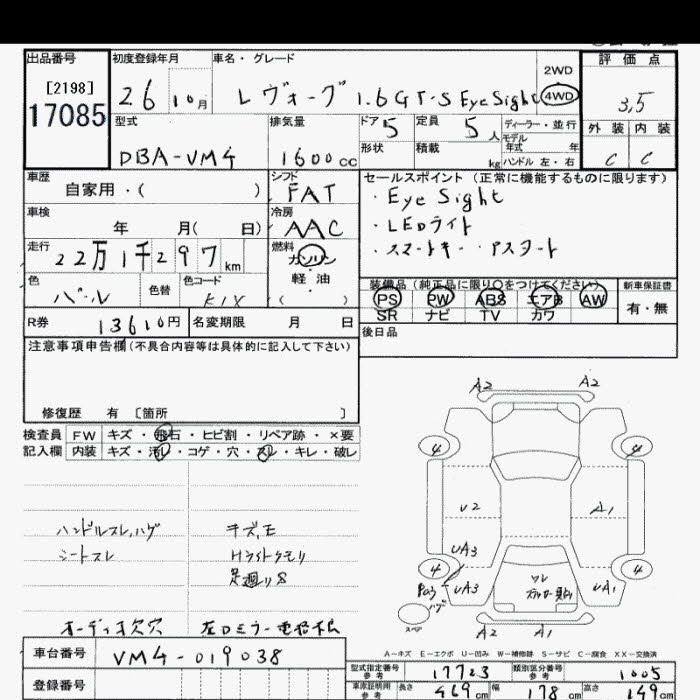 出品番号
[2198]
17085
初度登録年月
26 10月
車名・グレード
レヴォーグ 1.6GT-S EyeSight
2WD
4WD
評価点
3,5
外装 内装
C C
型式
DBA-VM4
排気量
1600cc
ドア 5
形状
定員 5人
積載 kg
ディーラー・並行
モデル
年式 年
ハンドル 左・右
車歴
自家用・( )
シフト
FAT
車検
年 月( 日)
冷房
AAC
走行
22万1千297km
燃料
ガソリン
軽・油
( )
色
パール
色替
色コード
K1X
セールスポイント (正常に機能するものに限ります)
・EyeSight
・LEDライト
・スマートキー・Pスタート
装備品(純正品に限り○をつけてください)
PS PW ABS エアB AW
SR ナビ TV カワ
新車保証書
有・無
R券 13610円
名変期限 月 日
後日品
注意事項申告欄(不具合内容等は具体的に記入して下さい)
修復歴 有 〔箇所 〕
検査員 FW キズ・飛石・ヒビ割・リペア跡・×要
記入欄 内装 キズ・汚レ・コゲ・穴・スレ・キレ・破レ
ハンドルスレ,ハゲ
シートスレ
キズ,E
Hライトクモリ
足廻りS
オーディオ欠穴
左Dミラー電格不良
A2 A2
4 4
U2 A1
UA3
4 4
P03 UA3 UA1
ハゲ
スペアー
ワレ
A2 A1
A-キズ E-エクボ U-凹み W-補修跡 S-サビ C-腐食 XX-交換済
車台番号 VM4-019038
登録番号
型式指定番号 参考 17723
類別区分番号 参考 1005
車庫証明用 参考 長さ 469cm 幅 178cm 高さ 149cm